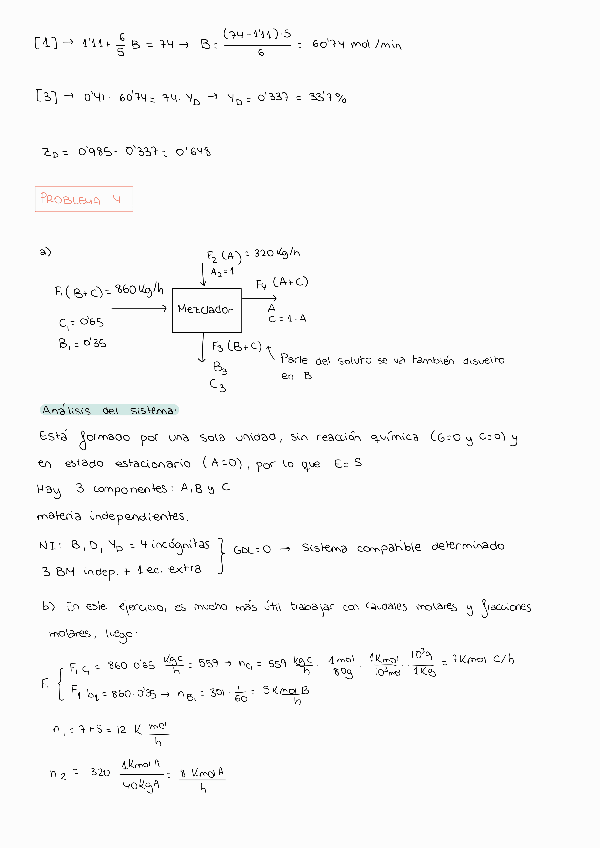 [1] → 1'11 + 6/5 B = 74 → B = (74-1'11)·5 / 6 = 60'74 mol/min
[3] → 0'41 · 60'74 = 74 · YD → YD = 0'337 = 33'7%
ZD = 0'985 - 0'337 = 0'648
PROBLEMA 4
a)
F2 (A) = 320 Kg/h
A2 = 1
F1 (B+C) = 860 Kg/h
F4 (A+C)
Mezclador
A
C = 1 - A
C1 = 0'65
B1 = 0'35
F3 (B+C)
B3
C3
Parte del soluto se va también disuelto
en B
Análisis del sistema:
Está formado por una sola unidad, sin reacción química (G=0 y C=0) y
en estado estacionario (A=0), por lo que E = S
Hay 3 componentes: A, B y C
materia independientes.
NI: B, D, YD = 4 incógnitas
3 BM indep. + 1 ec. extra
GDL = 0 → Sistema compatible determinado
b) En este ejercicio, es mucho más útil trabajar con caudales molares y fracciones
molares, luego:
F1 C1 = 860 · 0'65 KgC/h = 559 → nC1 = 559 KgC/h · 1mol/80g · 1Kmol/10³mol · 10³g/1Kg = 7Kmol C/h
F1 b1 = 860 · 0'35 → nB1 = 301 · 1/60 = 5 Kmol B/h
n1 = 7+5 = 12 K mol/h
n2 = 320 1Kmol A/40KgA = 8 Kmol A/h